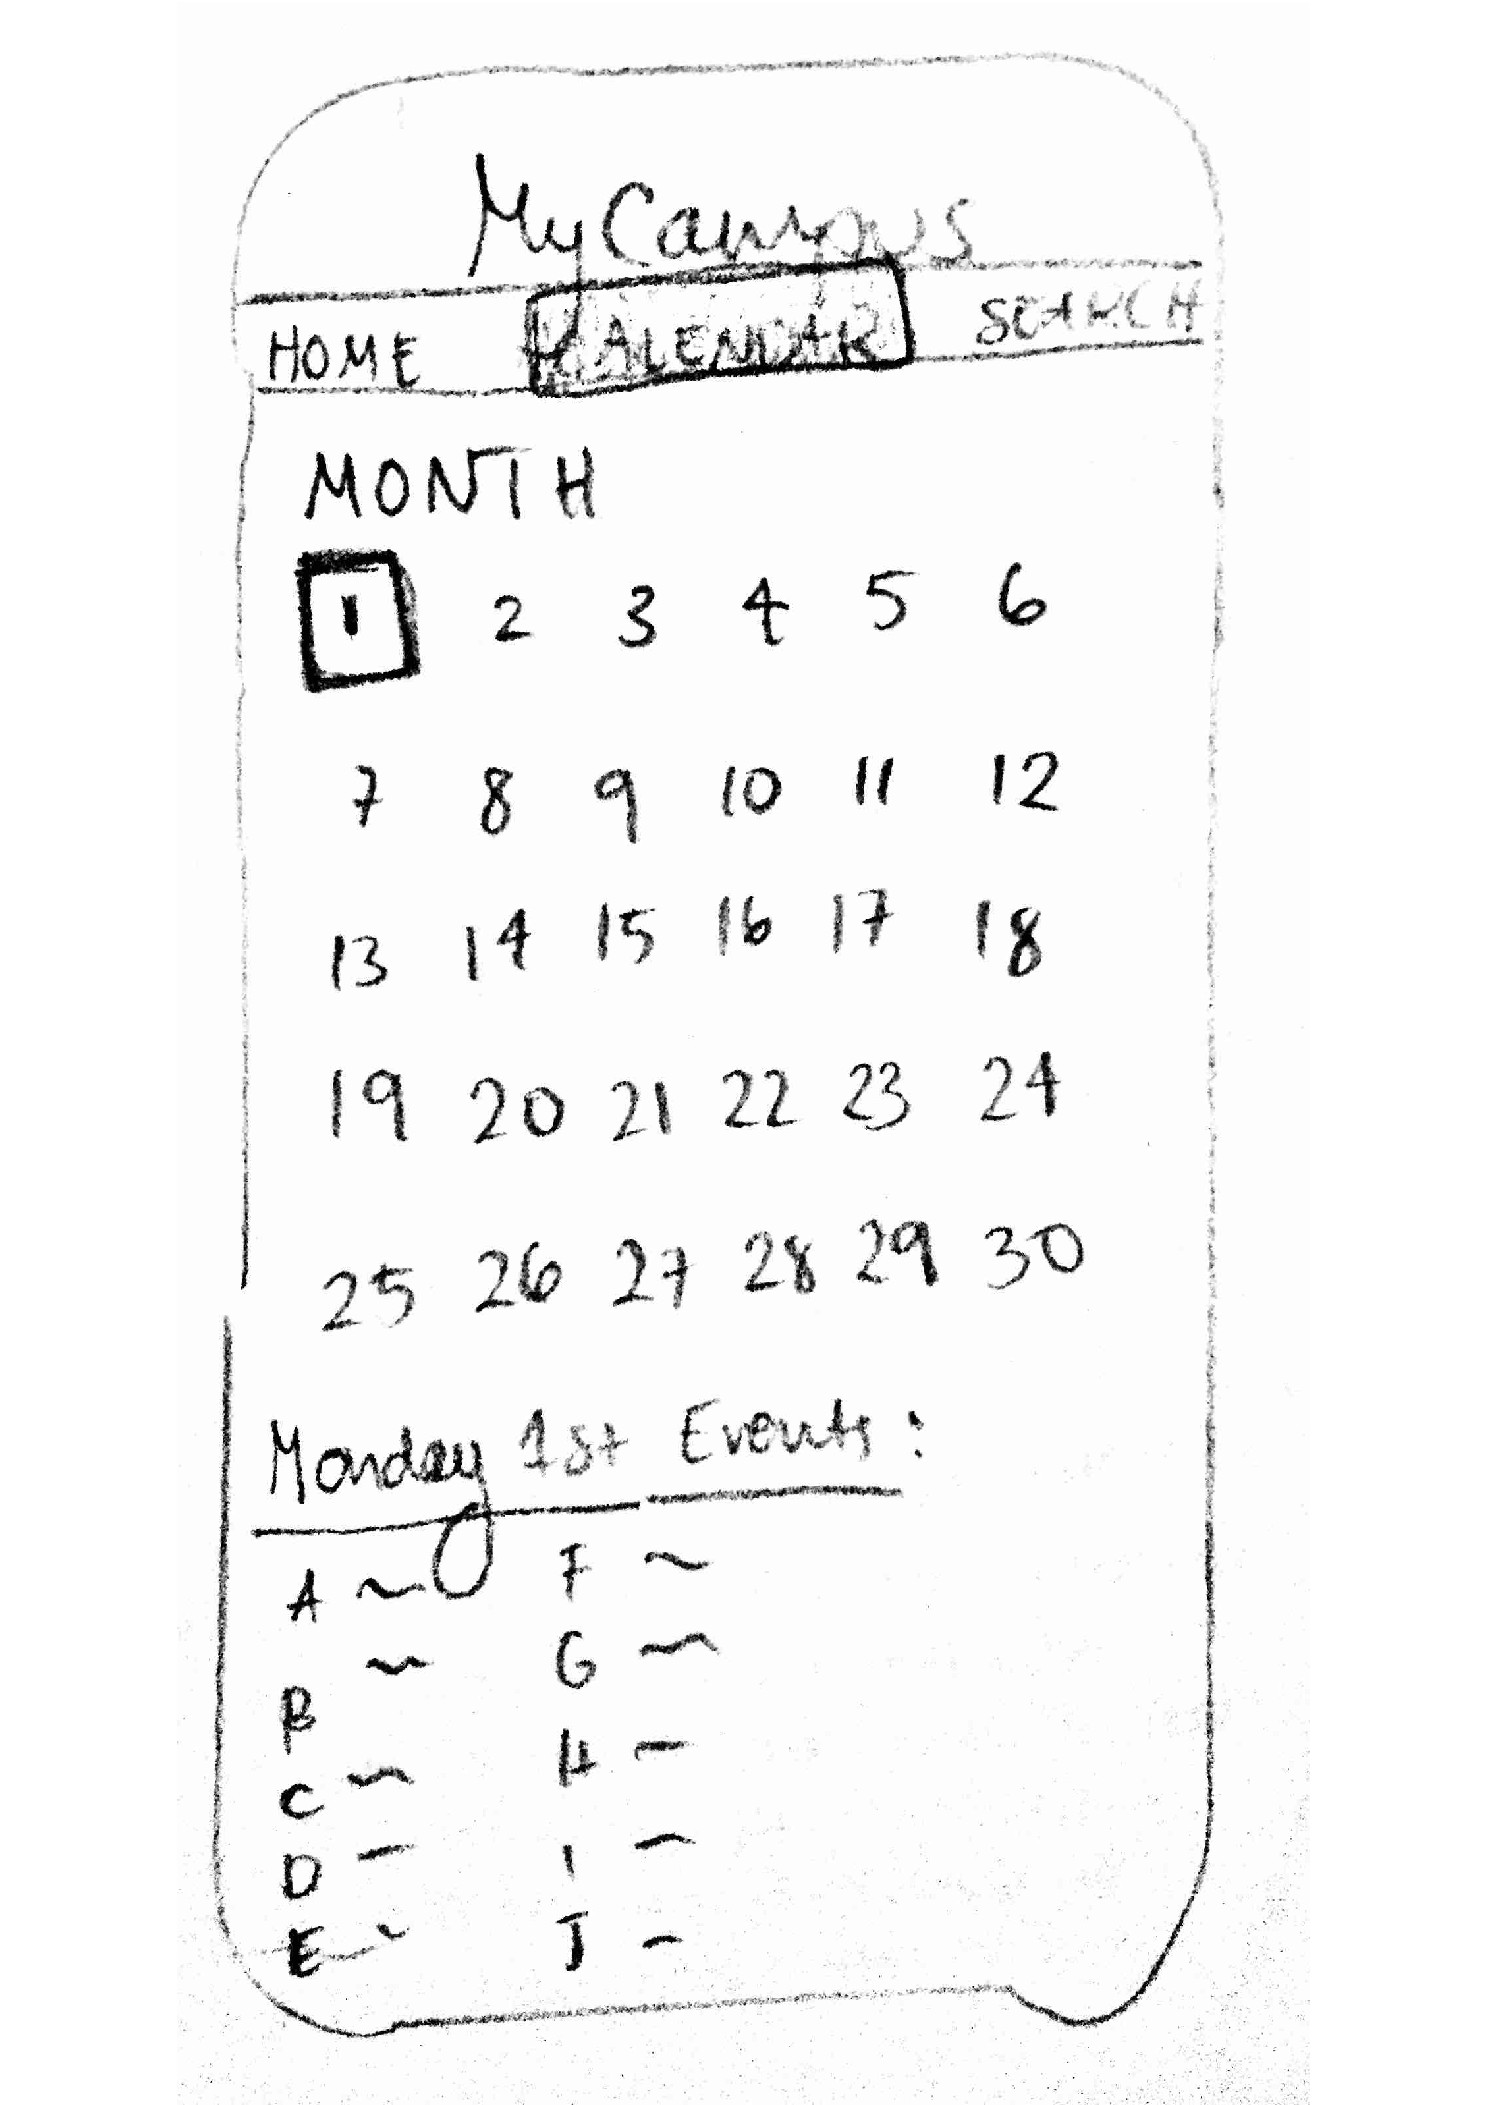 MyCampus
HOME CALENDAR SEARCH
MONTH
1 2 3 4 5 6
7 8 9 10 11 12
13 14 15 16 17 18
19 20 21 22 23 24
25 26 27 28 29 30
Monday 1st Events:
A ~ F ~
B ~ G ~
C ~ H ~
D ~ I ~
E ~ J ~